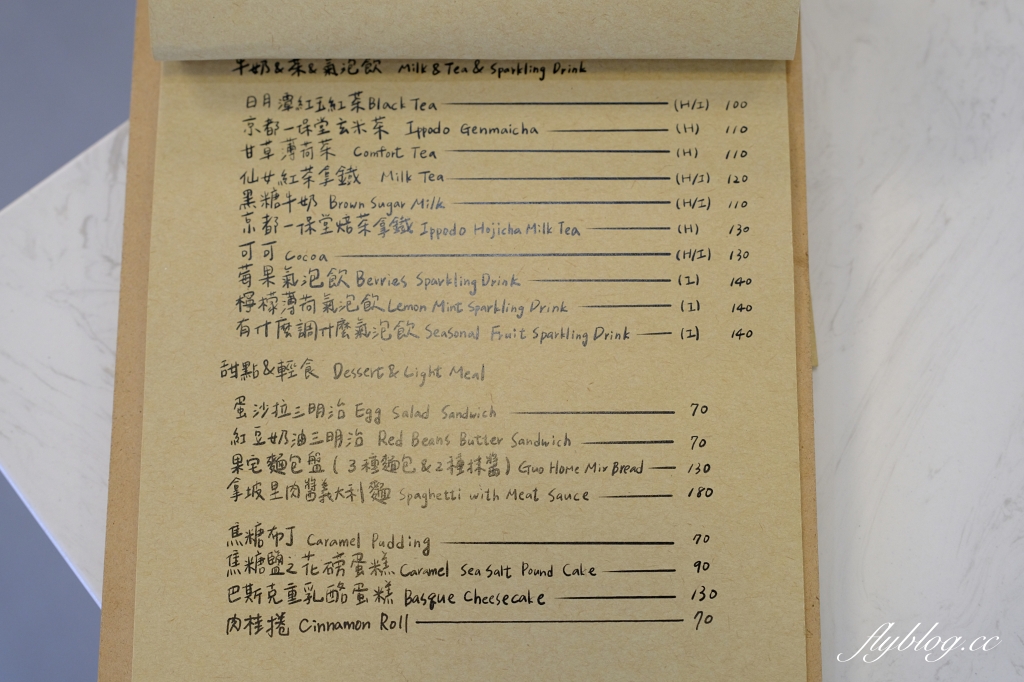 牛奶&茶&氣泡飲 Milk & Tea & Sparkling Drink
日月潭紅玉紅茶 Black Tea (H/I) 100
京都一保堂玄米茶 Ippodo Genmaicha (H) 110
甘草薄荷茶 Comfort Tea (H) 110
仙女紅茶拿鐵 Milk Tea (H/I) 120
黑糖牛奶 Brown Sugar Milk (H/I) 110
京都一保堂焙茶拿鐵 Ippodo Hojicha Milk Tea (H) 130
可可 Cocoa (H/I) 130
莓果氣泡飲 Berries Sparkling Drink (I) 140
檸檬薄荷氣泡飲 Lemon Mint Sparkling Drink (I) 140
有什麼調什麼氣泡飲 Seasonal Fruit Sparkling Drink (I) 140
甜點&輕食 Dessert & Light Meal
蛋沙拉三明治 Egg Salad Sandwich 70
紅豆奶油三明治 Red Beans Butter Sandwich 70
果宅麵包盤(3種麵包&2種抹醬) Guo Home Mix Bread 130
拿坡里肉醬義大利麵 Spaghetti with Meat Sauce 180
焦糖布丁 Caramel Pudding 70
焦糖鹽之花磅蛋糕 Caramel Sea Salt Pound Cake 90
巴斯克重乳酪蛋糕 Basque Cheesecake 130
肉桂捲 Cinnamon Roll 70
flyblog.cc